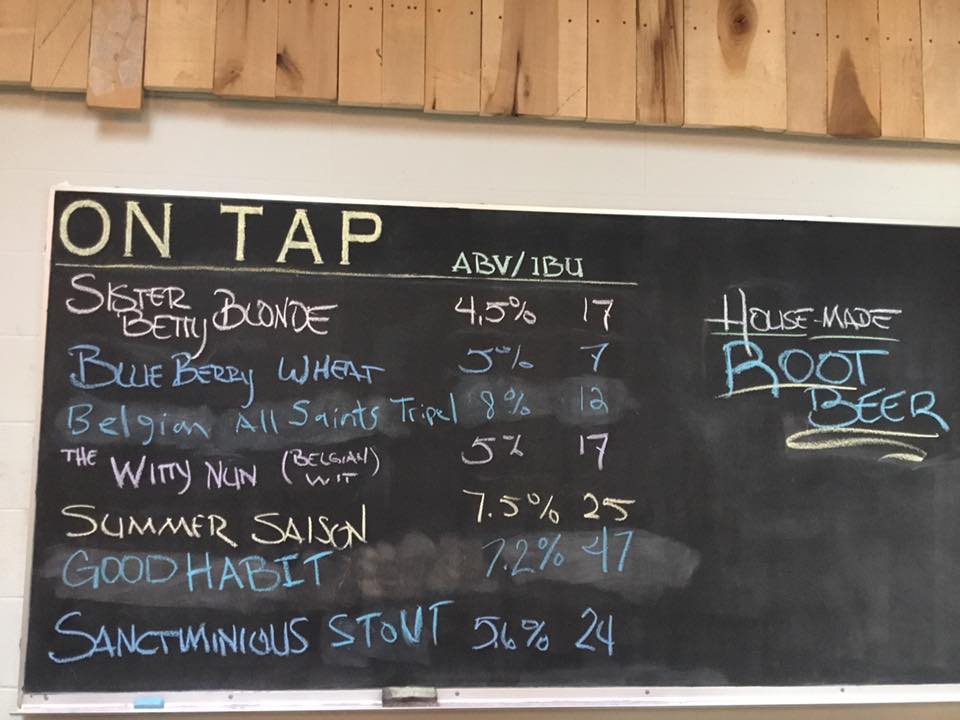 ON TAP ABV/IBU
SISTER BETTY BLONDE 4.5% 17
BLUEBERRY WHEAT 5% 7
Belgian All Saints Tripel 8% 12
THE WITTY NUN (BELGIAN WIT) 5% 17
SUMMER SAISON 7.5% 25
GOOD HABIT 7.2% 47
SANCTIMINIOUS STOUT 5.6% 24
HOUSE-MADE
ROOT
BEER